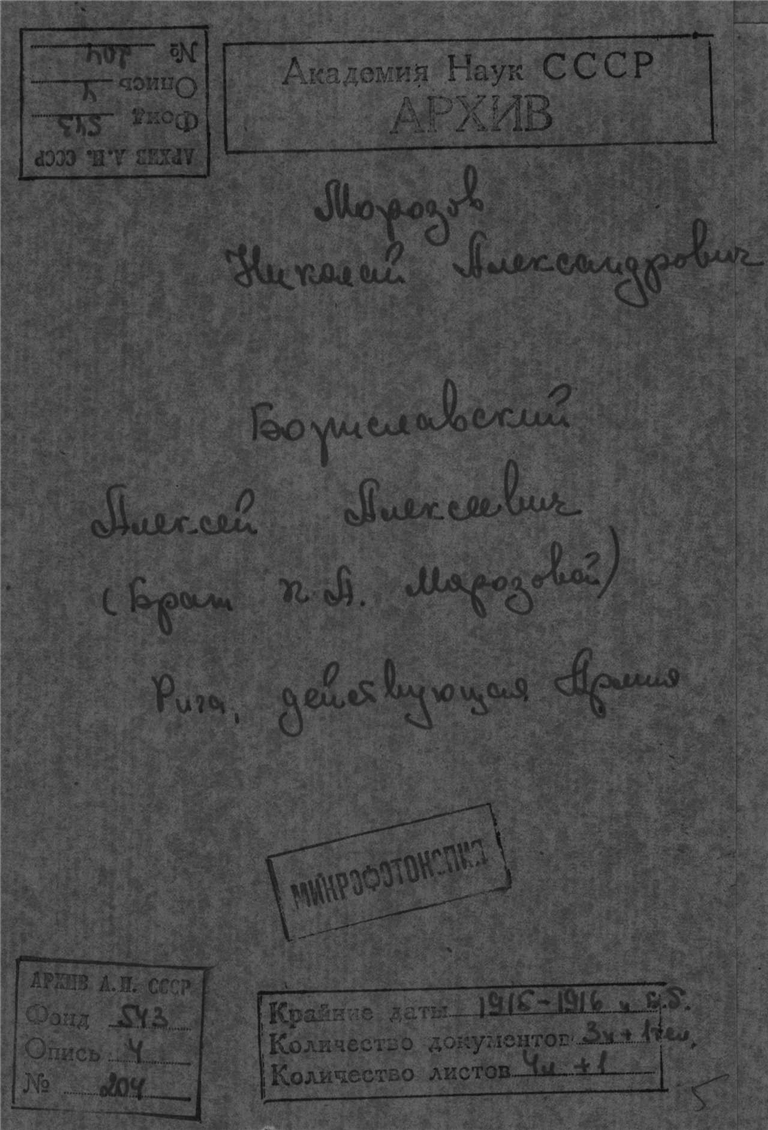 АРХИВ А.Н. СССР
Фонд 543
Опись 4
№ 204
Академия Наук СССР
АРХИВ
Морозов
Николай Александрович
Бориславский
Алексей Алексеевич
(Брат К.А. Морозовой)
Рига, действующая Армия
МИКРОФОТОКОПИЯ
АРХИВ А.Н. СССР
Фонд 543
Опись 4
№ 204
Крайние даты 1915-1916 и б.д.
Количество документов 3п+1тел.
Количество листов 4л +1
5